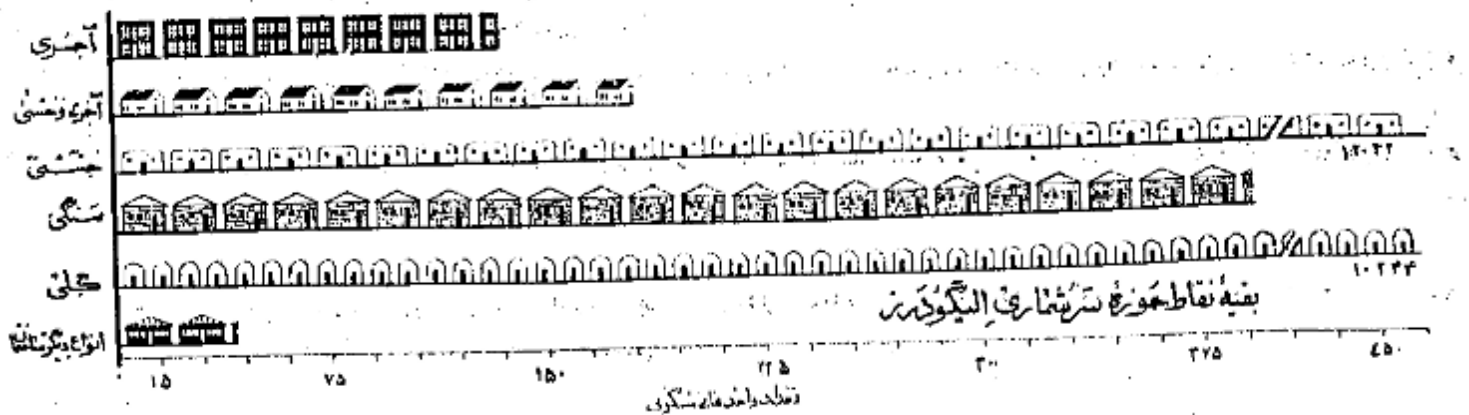 آجری
آجری و خشتی
خشتی
۱۲۰۳۲
سنگی
گلی
۱۰۲۴۴
بقیهٔ نقاط حوزهٔ سرشماری الیگودرز
انواع دیگر
۱۵ ۷۵ ۱۵۰ ۲۲۵ ۳۰۰ ۳۷۵ ۴۵۰
تعداد واحدهای مسکونی